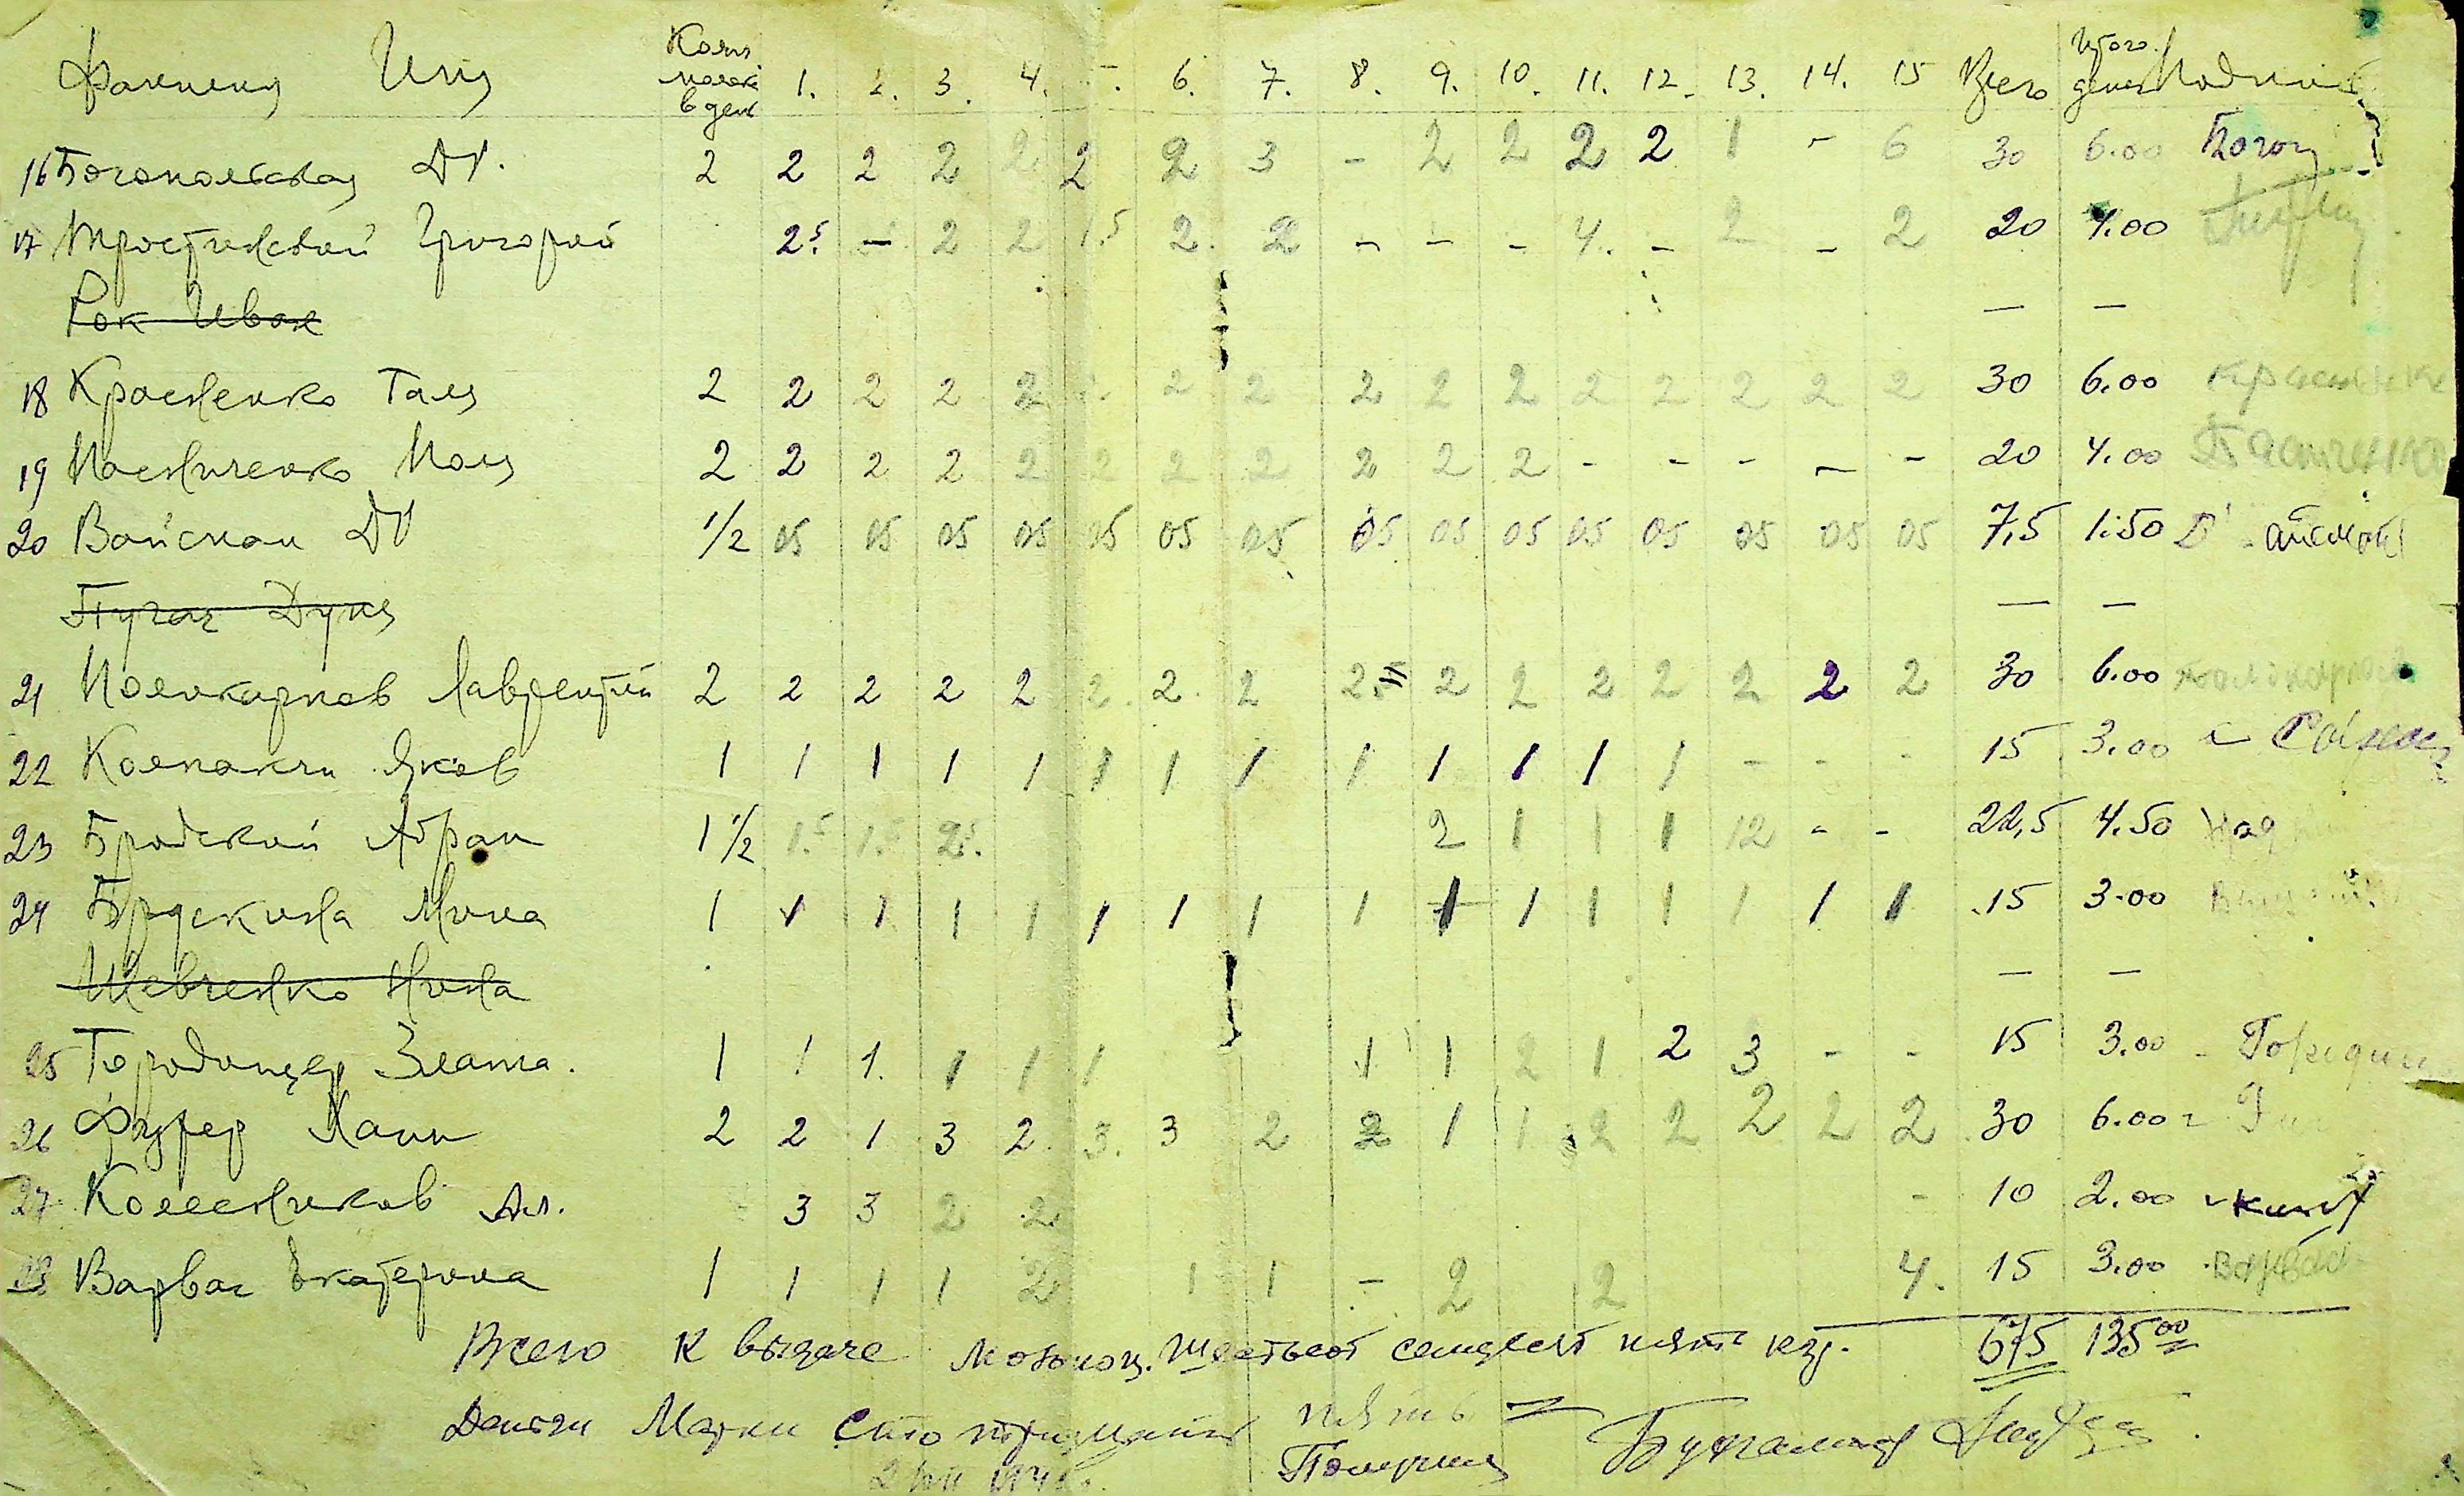 Фамилия Имя Колич молок в ден 1. 2. 3. 4. 6. 7. 8. 9. 10. 11. 12. 13. 14. 15 Всего Итого денег Подпись
16 Богопольская ДР. 2 2 2 2 2 2 2 3 - 2 2 2 2 1 - 6 30 6.00 Богоп
17 Тростинский Григорий 2.5 - 2 2 1.5 2. 2 - - - 4. - 2 - 2 20 4.00
Рок Иван — —
18 Красненко Галя 2 2 2 2 2 2 2 2 2 2 2 2 2 2 2 2 30 6.00 Красненк
19 Пасниченко Поля 2 2 2 2 2 2 2 2 2 2 2 - - - - - 20 4.00
20 Вайсман ДР 1/2 05 05 05 05 05 05 05 05 05 05 05 05 05 05 05 7,5 1.50
Пугач Дуня — —
21 Поликарпов Лаврентий 2 2 2 2 2 2. 2. 2 2.5 2 2 2 2 2 2 2 30 6.00
22 Колпакчи Яков 1 1 1 1 1 1 1 1 1 1 1 1 1 - - - 15 3.00
23 Бродский Абрам 1 1/2 1.5 1.5 2.5. 2 1 1 1 12 - - 22,5 4.50
24 Брускина Мина 1 1 1 1 1 1 1 1 1 1 1 1 1 1 1 1 15 3.00
Шевченко Нина — —
25 Городищер Злата. 1 1 1. 1 1 1 1 1 2 1 2 3 - - 15 3.00
26 Фурер Хаим 2 2 1 3 2. 3. 3 2 2 1 1 2 2 2 2 2 30 6.00
27 Колесников Ал. 3 3 2 2 - 10 2.00
28 Варвас Екатерина 1 1 1 1 2 1 1 - 2 2 4. 15 3.00
Всего к выдаче молока. Шестьсот семдесят пять 675 135 00
Деньги Марки Сто тридцать пять =
Получил